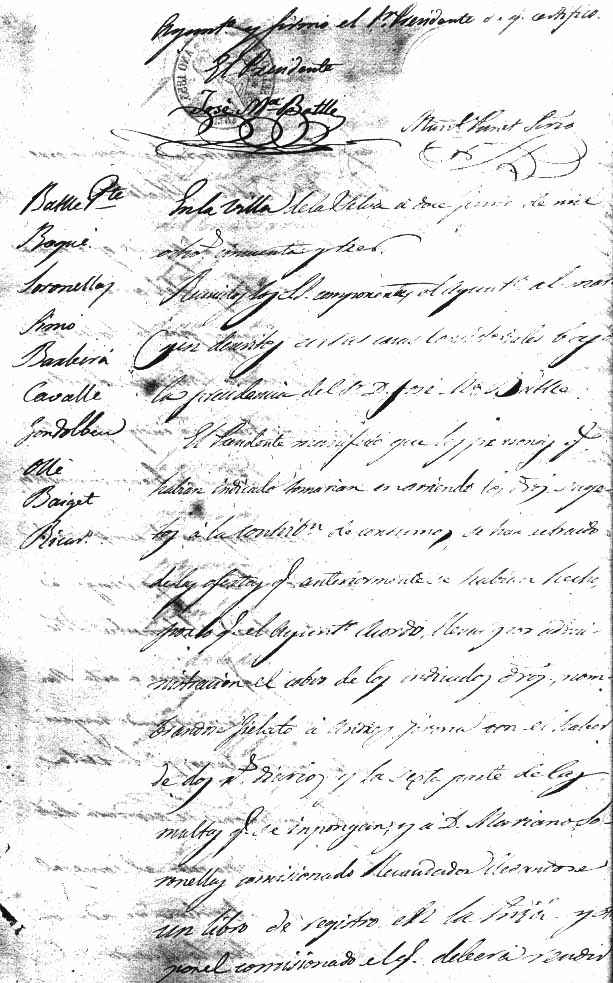 Ayunt.º y firmo el Sr. Presidente de q. certifico.
El Presidente
José M.ª Batlle
Batlle Pte
Baqué
Soronellas
Simó
Barberá
Cavallé
Gondolbeu
Ollé
Baiget
En la villa de la Selva a doce Junio de mil
ocho.s cincuenta y tres.
Reunidos los SS. componentes el Ayunt.º al mar-
gen descritos en las casas Consistoriales bajo
la presidencia del Sr. D. José M.ª Batlle.
El Presidente manifestó que las personas q.
habian indicado tomarian en arriendo los dros suge-
tos á la contrib.n de consumos, se han retraido
de las ofertas q. anteriormente se habian hecho,
por lo q. el Ayunt.º acordó, llevar por admi-
nistracion el cobro de los indicados dros, nom-
brando fielato á con el haber
de dos r.s diarios y la sexta parte de las
multas q. se inpongan, y á D. Mariano So-
ronellas comisionado Recaudador llevandose
un libro de registro en la y otro
por el comisionado el q. deberá rendir